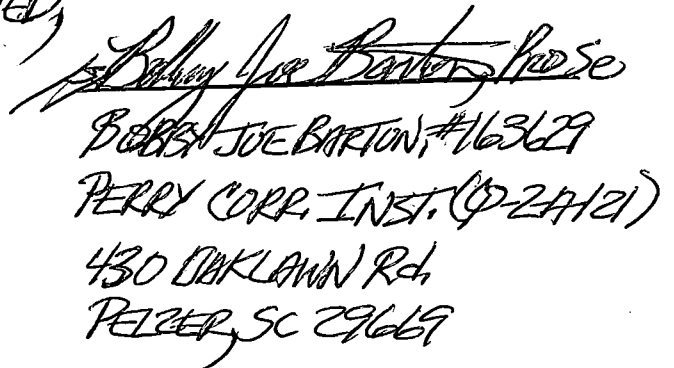 s/Bobby Joe Barton, Pro Se
BOBBY JOE BARTON, #163629
PERRY CORR. INST. (Q-2A-121)
430 OAKLAWN Rd.
PELZER, SC 29669